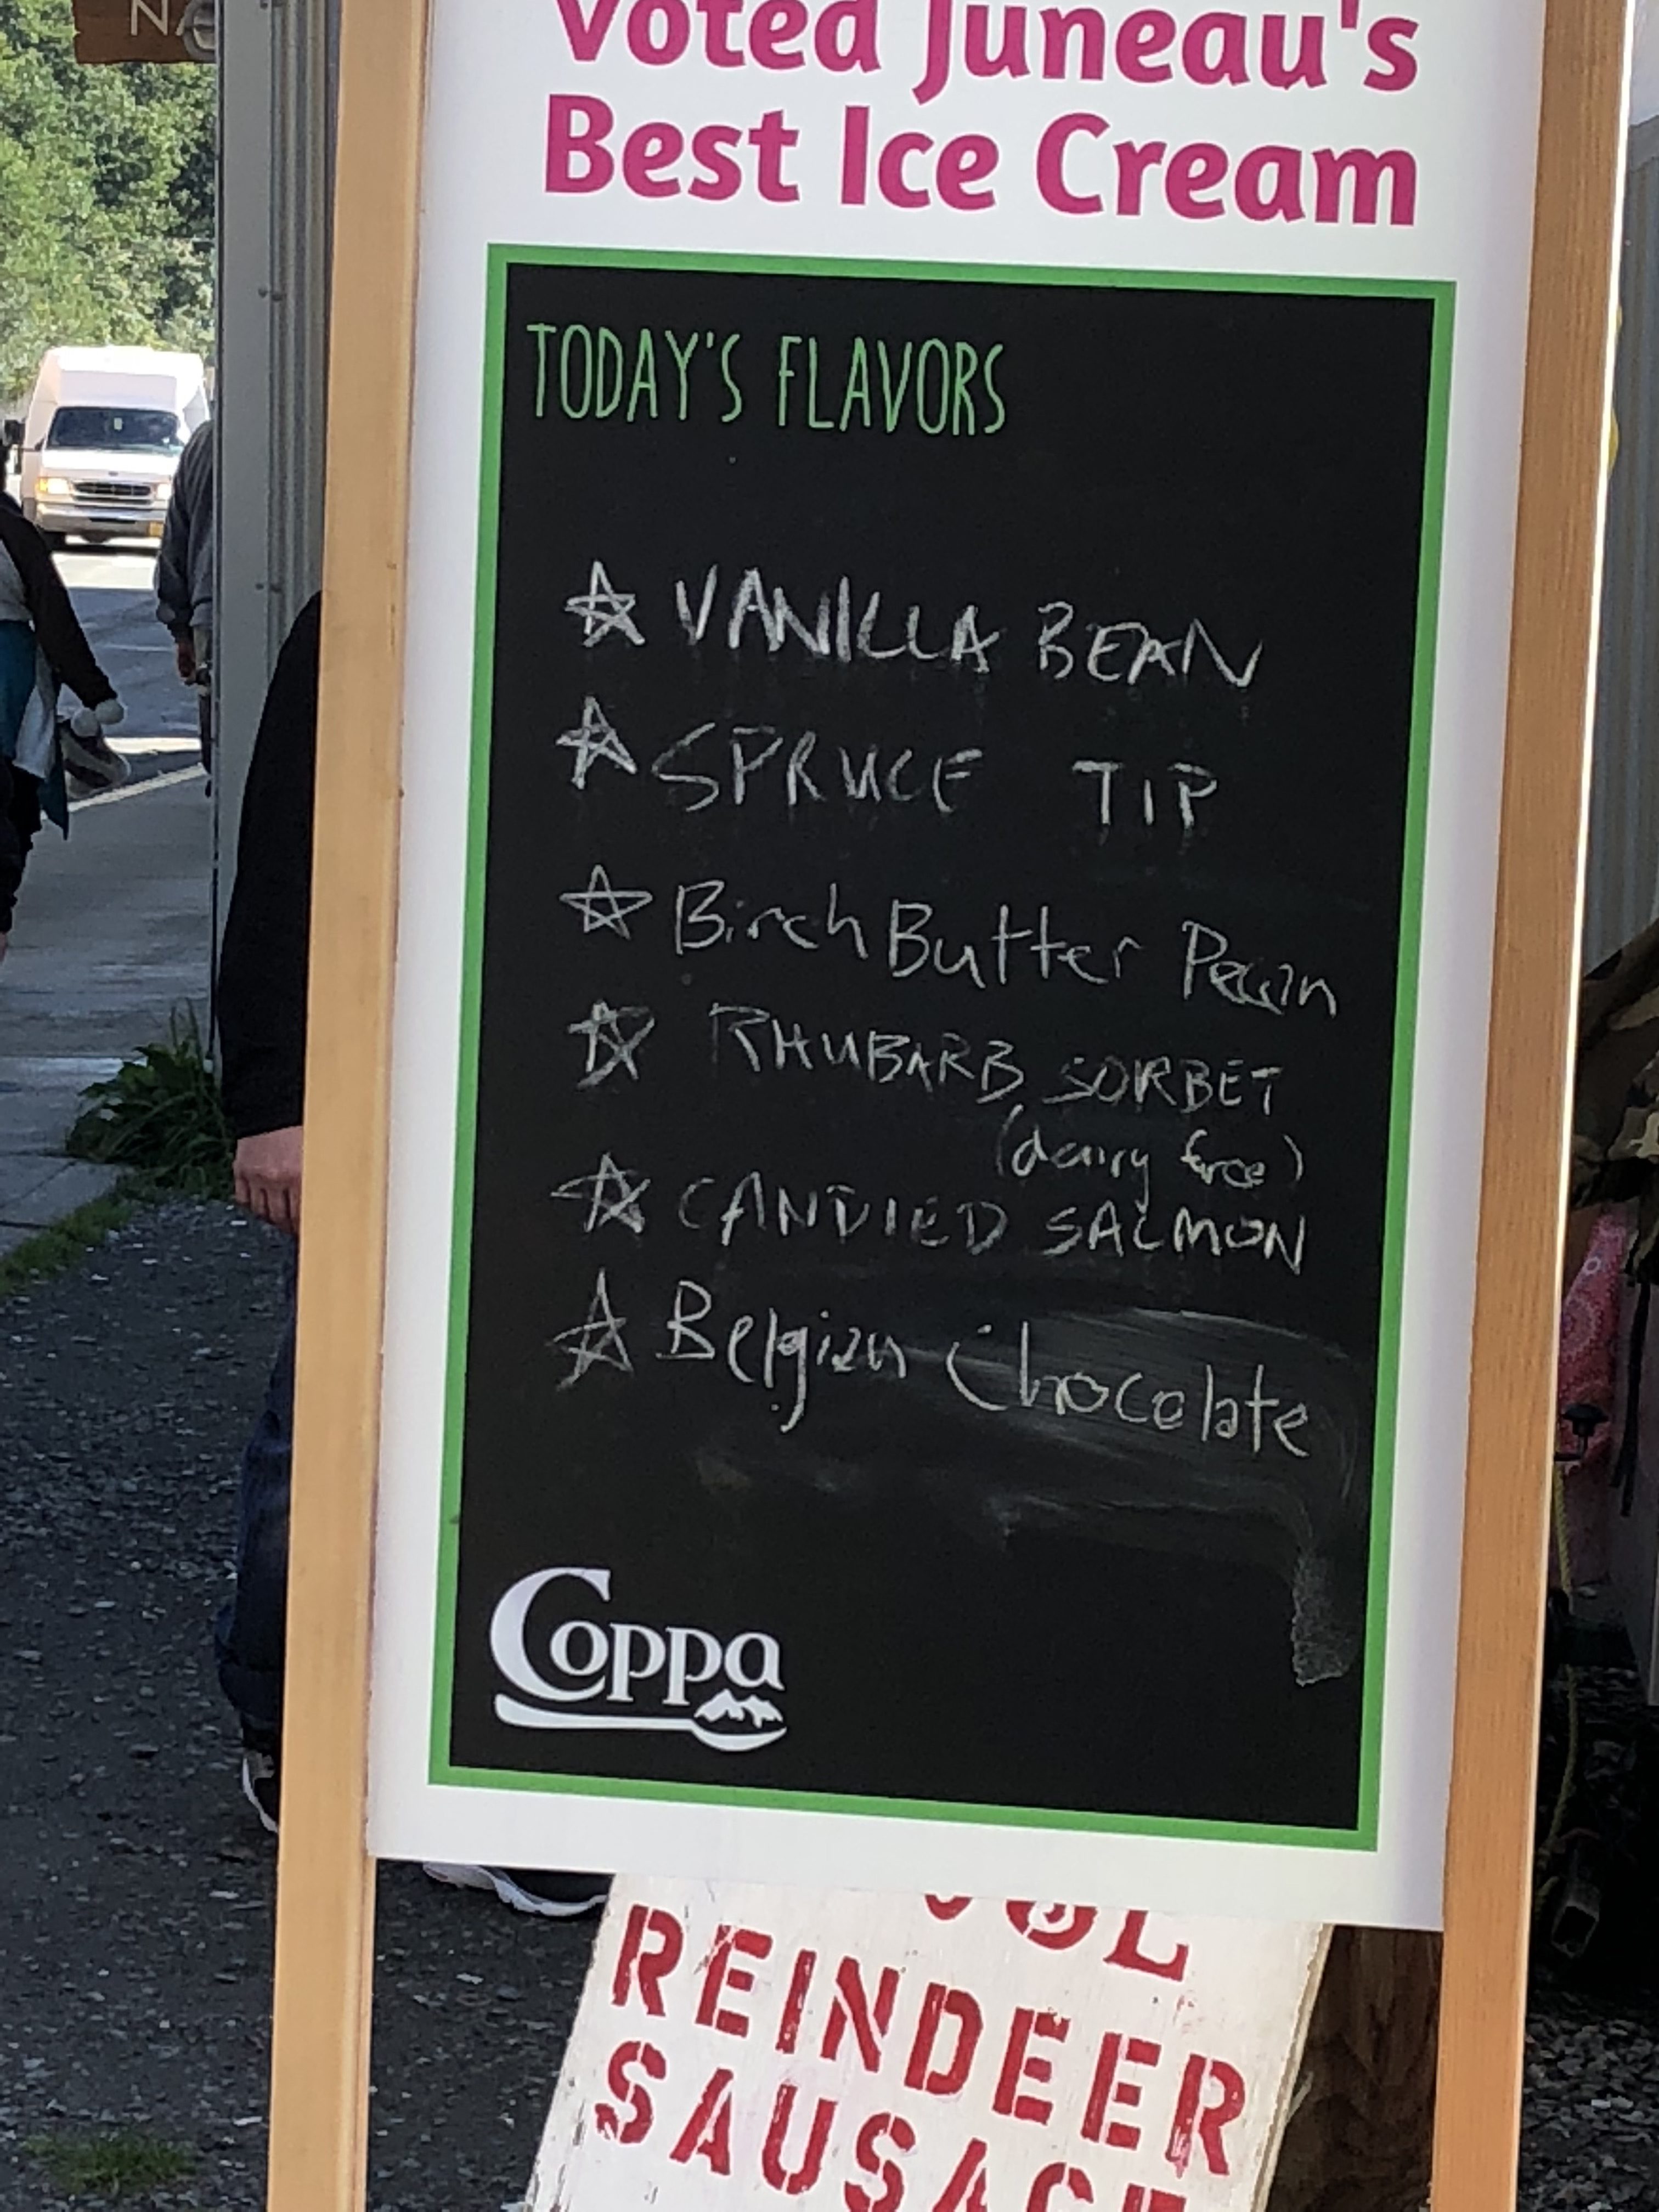 NA
Voted Juneau's
Best Ice Cream
TODAY'S FLAVORS
☆ VANILLA BEAN
☆ SPRUCE TIP
☆ Birch Butter Pecan
☆ RHUBARB SORBET
(dairy free)
☆ CANDIED SALMON
☆ Belgian Chocolate
Coppa
REINDEER
SAUSAGE